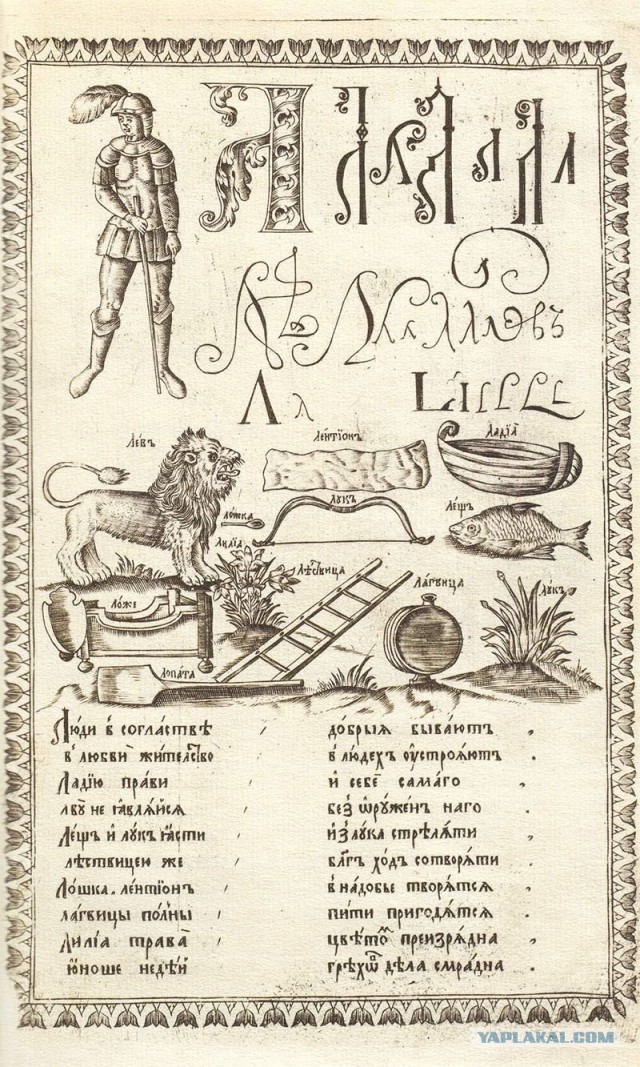 Левъ
Лентїонъ
Ладїа
Лукъ
Лещъ
Ложка
Лилїа
Лѣствица
Лагвица
Лукъ
Ложе
Лопата
Люди в согласствѣ добрыя бываютъ
в любви жителство в людехъ оустрояютъ
Ладїю прави и себе самаго
лву не ꙗвляйся без ѡружен наго
Лещъ и лукъ ꙗсти из лука стрѣляти
лѣствицею же благъ ходъ сотворяти
Лошка. лентїонъ в надобье творятся
лагвицы полны пити пригодятся
Лилїа трава цвѣтом преизрядна
юноше недей грѣхѡв дѣла смрадна
YAPLAKAL.COM